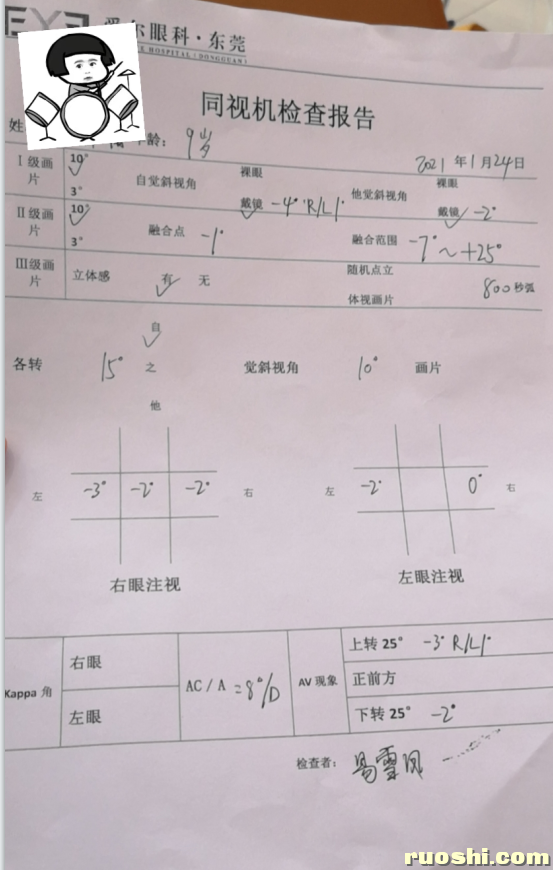 爱尔眼科·东莞
E HOSPITAL (DONGGUAN)
同视机检查报告
姓 年龄: 9岁
2021年1月24日
Ⅰ级画片 10° ✓ 3° 自觉斜视角 裸眼 戴镜 ✓ -4° R/L1° 他觉斜视角 裸眼 戴镜 ✓ -2°
Ⅱ级画片 10° ✓ 3° 融合点 -1° 融合范围 -7°~+25°
Ⅲ级画片 立体感 有 ✓ 无 随机点立体视画片 800秒弧
各转 15° 自 ✓ 之 他 觉斜视角 10° 画片
左 -3° -2° -2° 右
左 -2° 0° 右
右眼注视
左眼注视
Kappa 角 右眼 左眼
AC/A = 8°/D
AV 现象
上转 25° -3° R/L1°
正前方
下转 25° -2°
检查者: 易雪凤
ruoshi.com